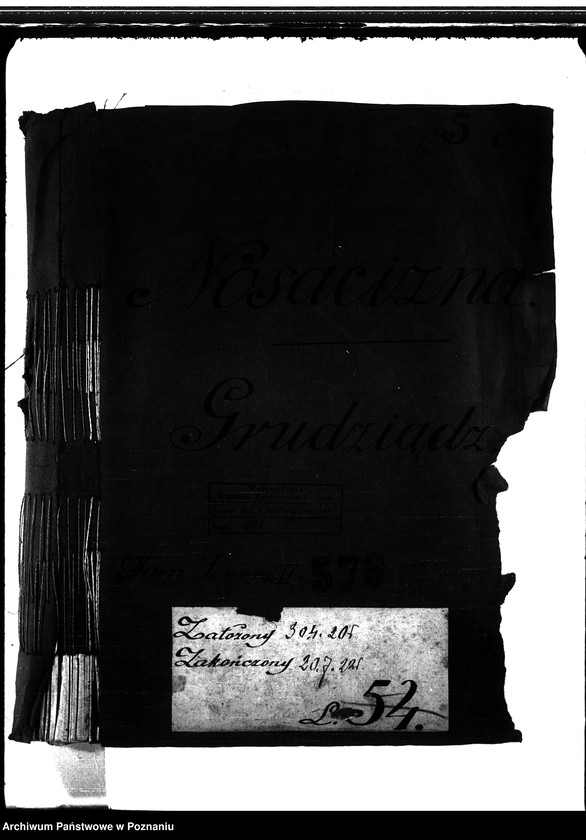 5
Nosacizna.
Grudziądz
Tom I
II 573
Założony 30 4. 20r
Zakończony 20.7.22r
L. 54.
Archiwum Państwowe w Poznaniu